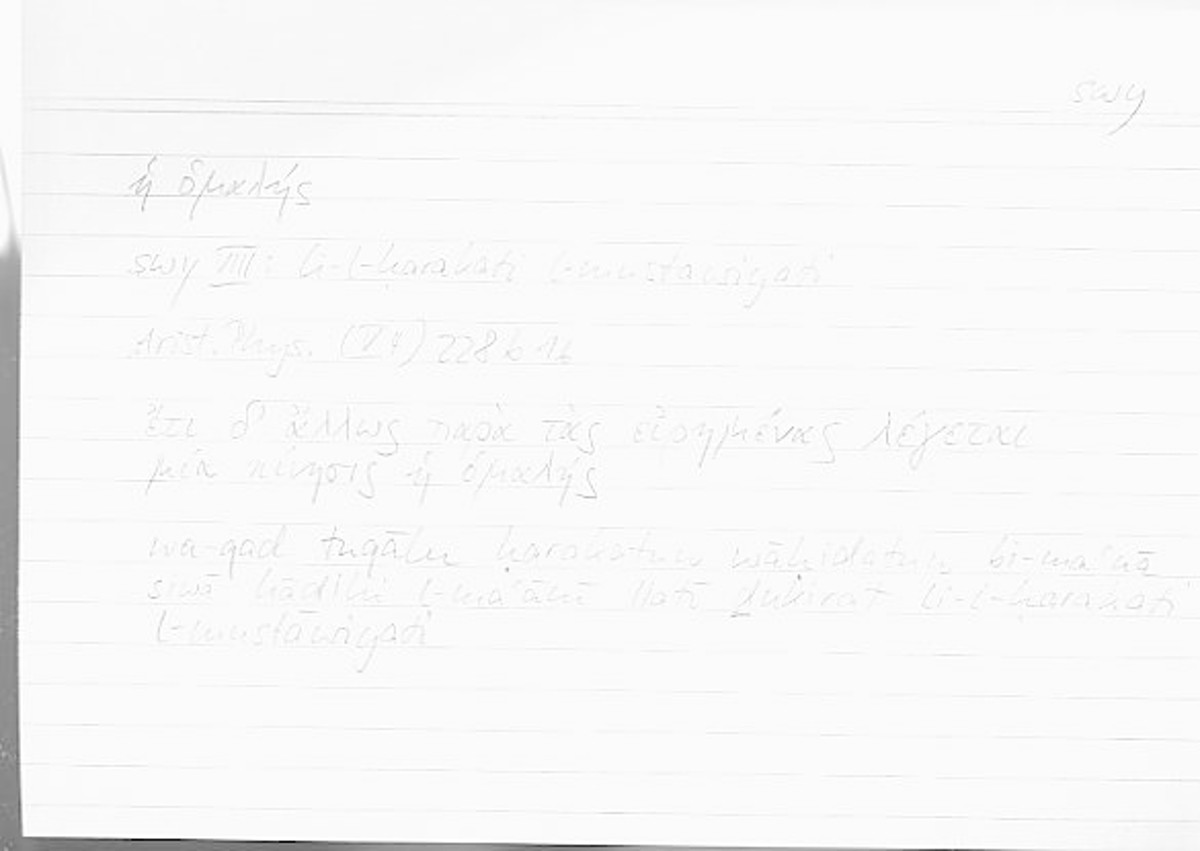 swy
ἡ ὁμαλής
swy VIII: li-l-ḥarakati l-mustawiyati
Arist. Phys. (V 4) 228 b 16
ἔτι δ' ἄλλως παρὰ τὰς εἰρημένας λέγεται
μία κίνησις ἡ ὁμαλής
wa-qad tuqālu ḥarakatun wāḥidatun bi-maʿnā
siwā hāḏihi l-maʿānī llatī ḏukirat li-l-ḥarakati
l-mustawiyati